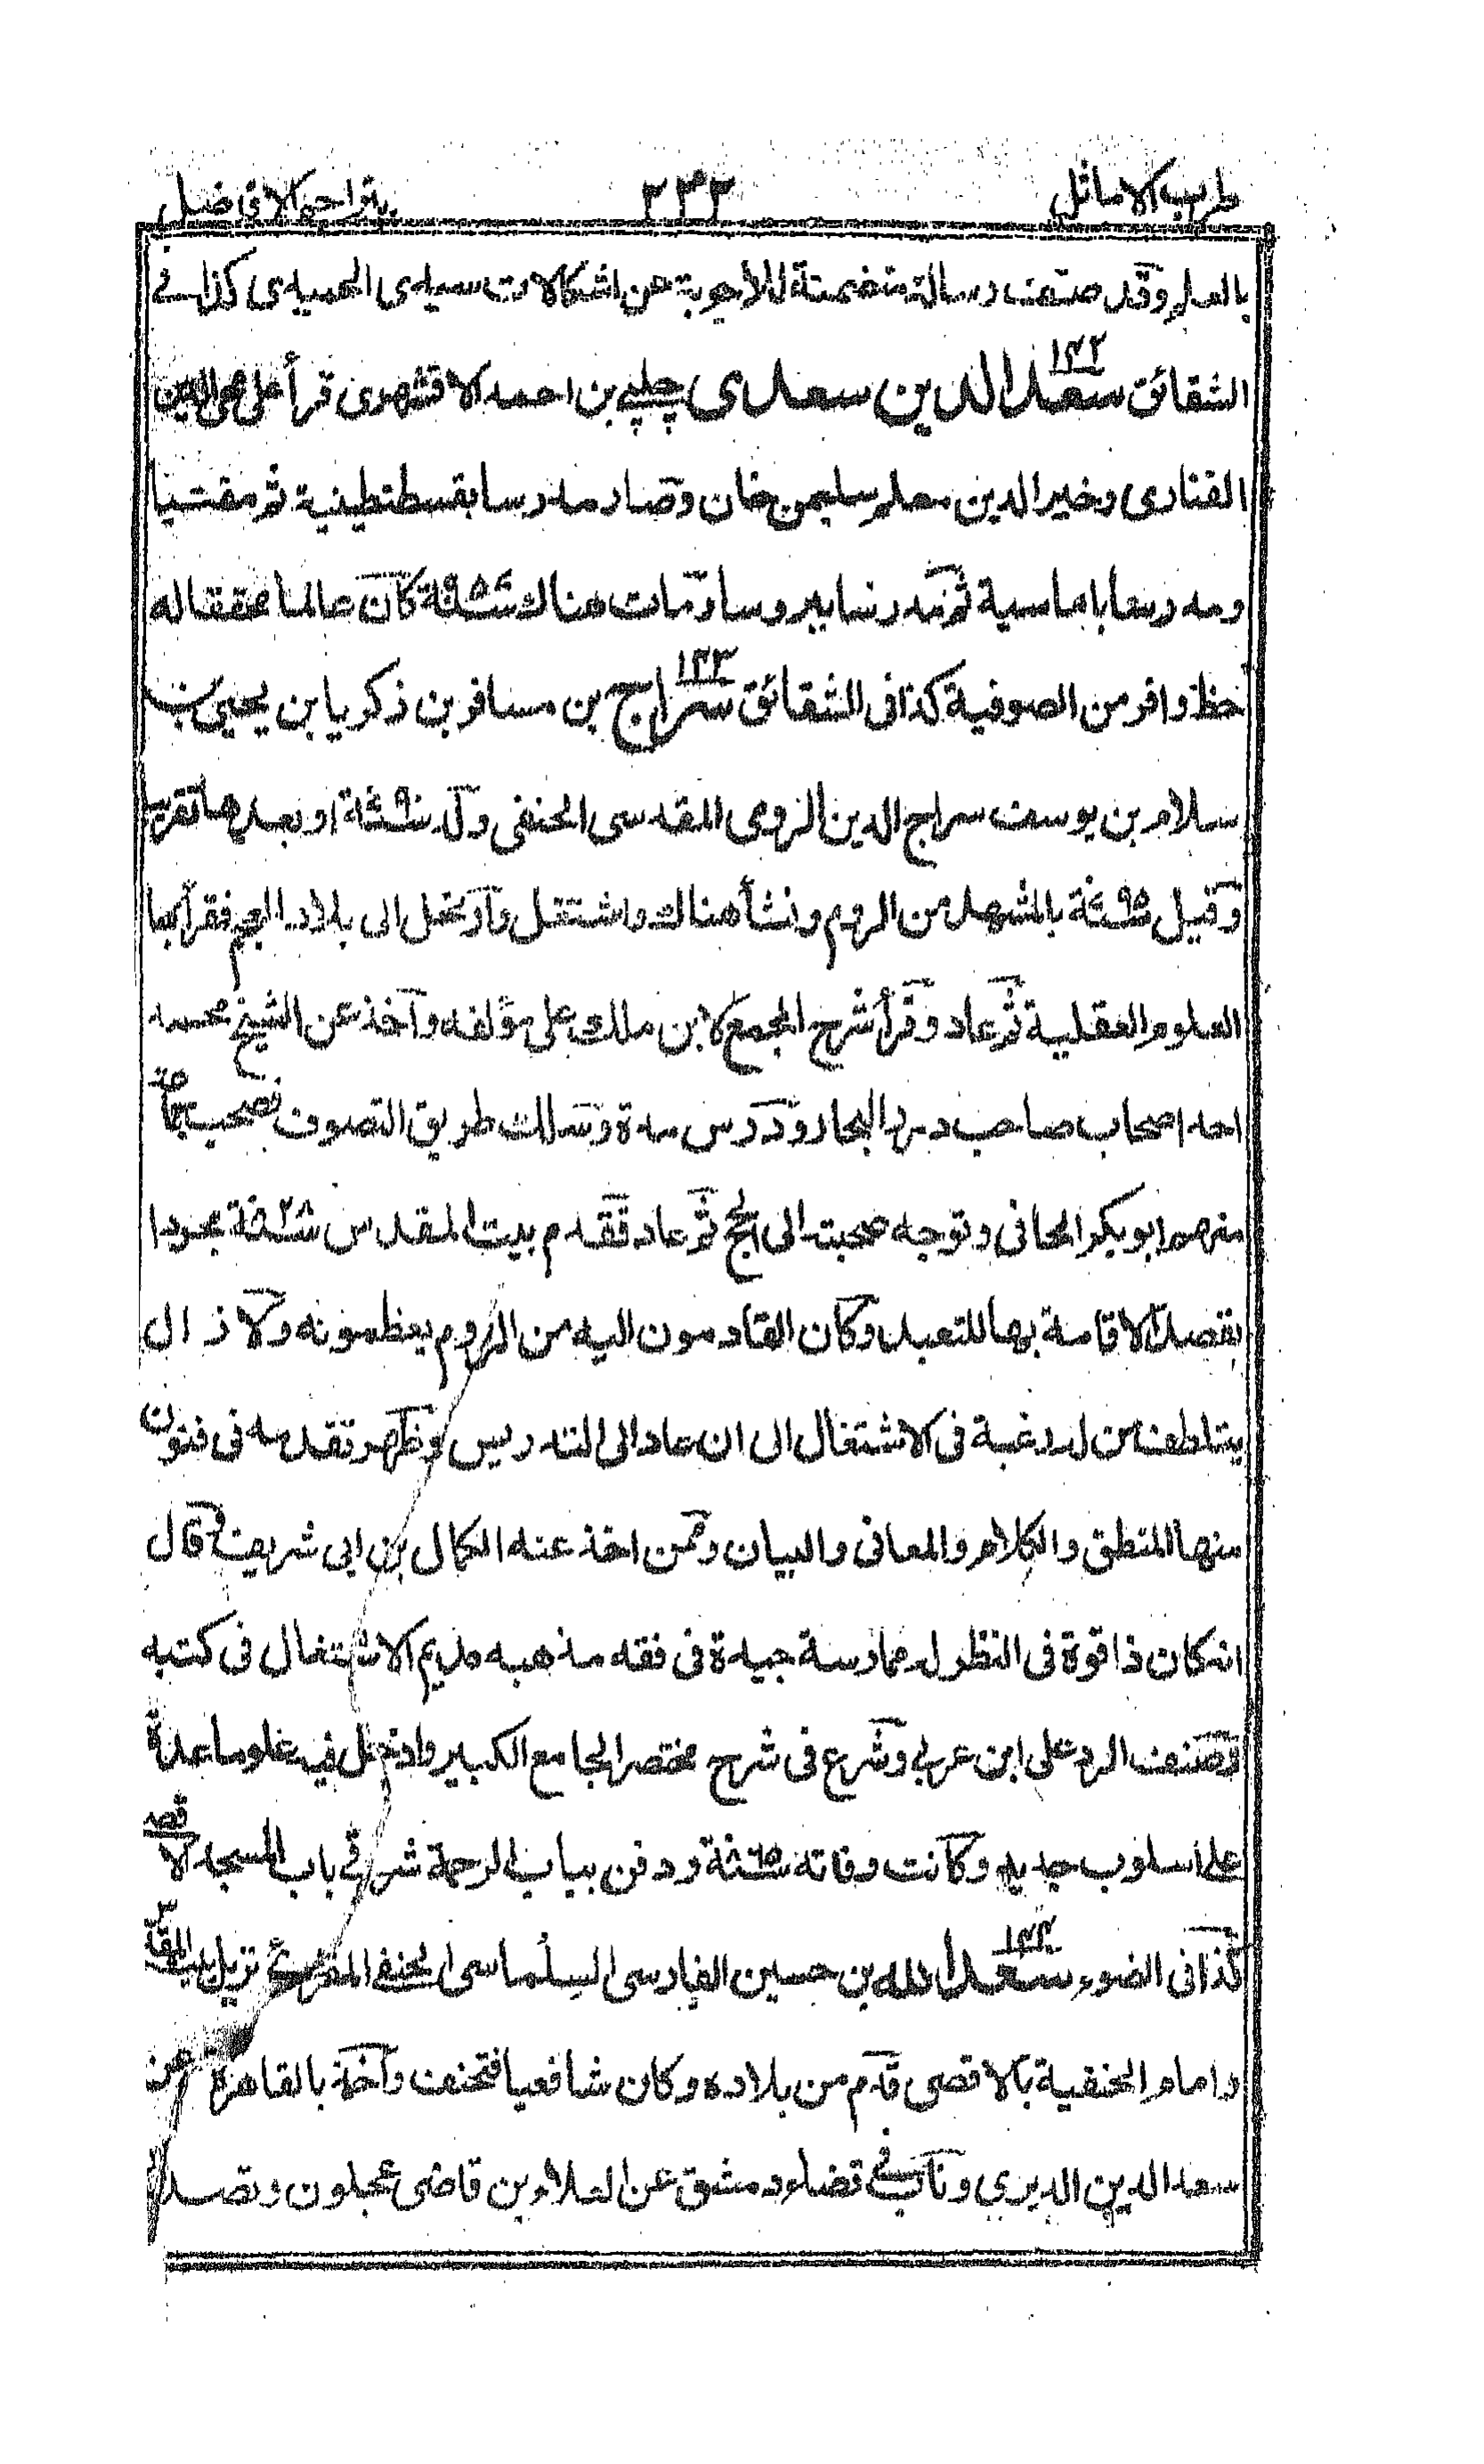 طرب الاماثل ٢٣٢ بتراجم الافاضل
بالعلم وقد صنف رسالة متضمنة للاجوبة عن اشكالات سيدى الحميدى كذا فى
الشقائق ١٣٢ سعد الدين سعدى چلپى بن احمد الاقشهرى قرأ على محى الدين
الفنارى وخير الدين معلم سليمن خان وصار مدرسا بقسطنطينية ثم مفتيا
ومدرسا باماسية ثم مدرسا ببروسا ومات هناك سنة كان عالما محققا له
حظ وافر من الصوفية كذا فى الشقائق ١٣٣ سراج بن مسافر بن زكريا بن يحيى بن
سلام بن يوسف سراج الدين الرومى المقدسى الحنفى ولد سنة او بعدها تقريبا
وقيل سنة بالمشهد من الروم ونشأ هناك واشتغل وارتحل الى بلاد العجم فقرأ بها
العلوم العقلية ثم عاد وقرأ شرح المجمع لابن ملك على مؤلفه واخذ عن الشيخ محمد
احد اصحاب صاحب درر البحار ودرس مدة وسلك طريق التصوف فصحب جماعة
منهم ابو بكر الخافى وتوجه صحبته الى الحج ثم عاد فقدم بيت المقدس سنة مجردا
بقصد الاقامة بها للتعبد وكان القادمون اليه من الروم يعظمونه ولا زال
يتلطف من له رغبة فى الاشتغال الى ان عاد الى التدريس وظهر تقدمه فى فنون
منها المنطق والكلام والمعانى والبيان وممن اخذ عنه الكمال بن ابى شريف وقال
انه كان ذا قوة فى النظر له ممارسة جيدة فى فقه مذهبه مديم الاشتغال فى كتبه
وصنف الرد على ابن عربى وشرع فى شرح مختصر الجامع الكبير وادخل فيه علوما عدة
على اسلوب جديد وكانت وفاته سنة ودفن بباب الرحمة شرقى باب المسجد الاقصى
كذا فى الضوء ١٣٤ سعد الله بن حسين الفارسى السلماسى الحنفى المقرئ نزيل بيت المقدس
وامام الحنفية بالاقصى قدم من بلاده وكان شافعيا فتحنف واخذ بالقاهرة عن
سعد الدين الديرى وناب فى قضاء دمشق عن العلاء بن قاضى عجلون وتصدر